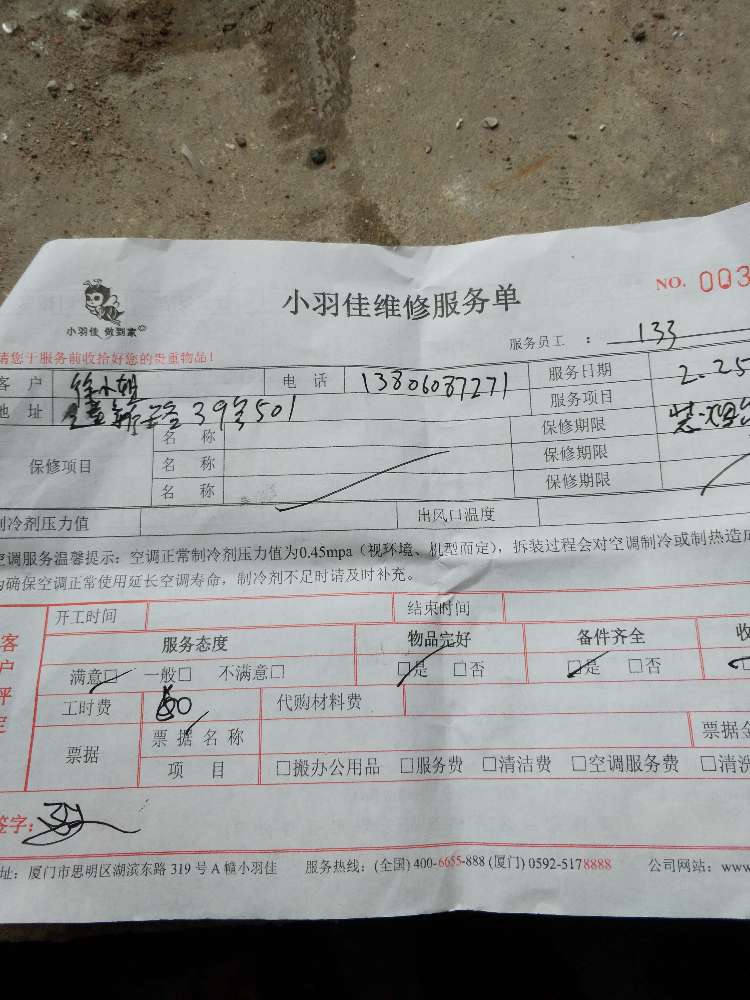 小羽佳维修服务单
NO. 003
小羽佳 做到家
服务员工 : 133
请您于服务前收拾好您的贵重物品!
客 户 徐小姐 电 话 13806087271 服务日期 2.25
地 址 39号501 服务项目
保修项目 名 称 保修期限
名 称 保修期限
名 称 保修期限
制冷剂压力值 出风口温度
空调服务温馨提示：空调正常制冷剂压力值为0.45mpa（视环境、机型而定），拆装过程会对空调制冷或制热造成
为确保空调正常使用延长空调寿命，制冷剂不足时请及时补充。
客户评定
开工时间 结束时间
服务态度 物品完好 备件齐全 收
满意□ 一般□ 不满意□ □是 □否 □是 □否
工时费 代购材料费
票据 票据名称 票据金
项 目 □搬办公用品 □服务费 □清洁费 □空调服务费 □清洗
签字:
址：厦门市思明区湖滨东路 319 号 A 幢小羽佳 服务热线：(全国) 400-6655-888 (厦门) 0592-5178888 公司网站：www